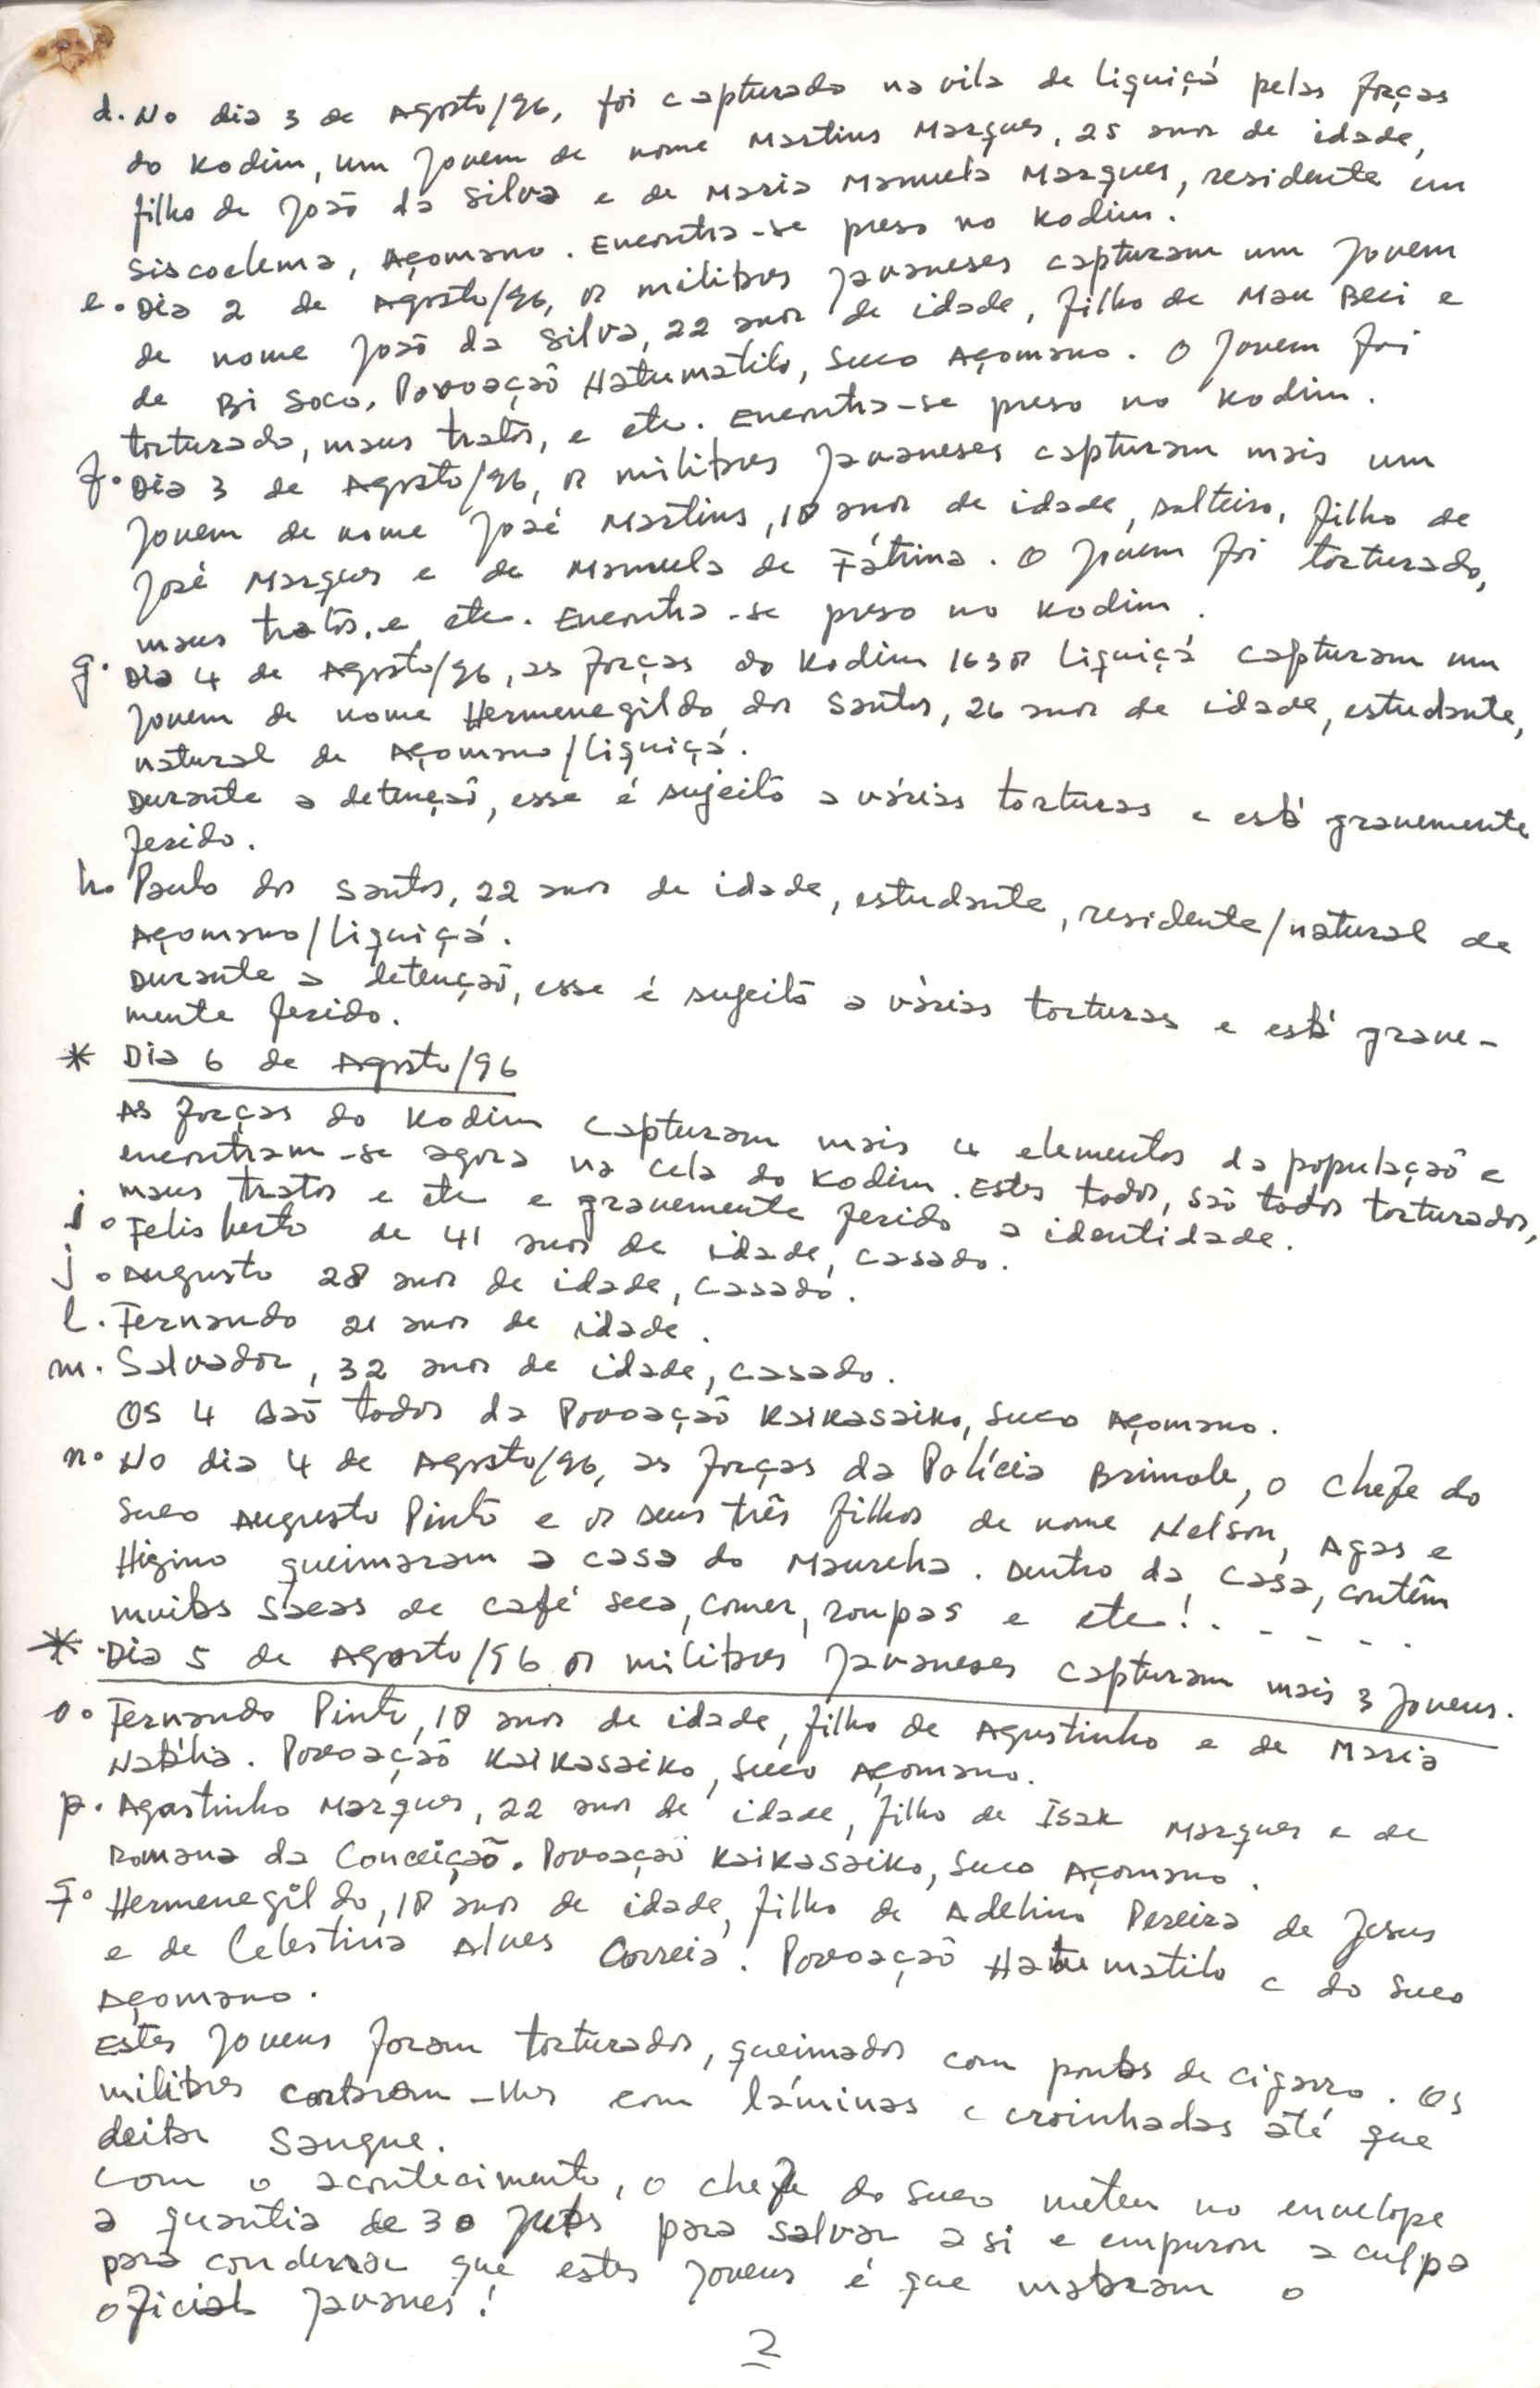 d. No dia 3 de Agosto/96, foi capturado na vila de Liquiçá pelas forças
do Kodim, um jovem de nome Martins Marques, 25 anos de idade,
filho de João da Silva e de Maria Manuela Marques, residente em
Siscoelema, Açomano. Encontra-se preso no Kodim.
e. Dia 2 de Agosto/96, os militares javaneses capturam um jovem
de nome João da Silva, 22 anos de idade, filho de Mau Beci e
de Bi Soco, Povoação Hatumatilo, Suco Açomano. O jovem foi
torturado, maus tratos, e etc. Encontra-se preso no Kodim.
f. Dia 3 de Agosto/96, os militares javaneses capturam mais um
jovem de nome José Martins, 18 anos de idade, solteiro, filho de
José Marques e de Manuela de Fátima. O jovem foi torturado,
maus tratos, e etc. Encontra-se preso no Kodim.
g. Dia 4 de Agosto/96, as forças do Kodim 1638 Liquiçá capturam um
jovem de nome Hermenegildo dos Santos, 26 anos de idade, estudante,
natural de Açomano/Liquiçá.
Durante a detenção, esse é sujeito a várias torturas e está gravemente
ferido.
h. Paulo dos Santos, 22 anos de idade, estudante, residente/natural de
Açomano/Liquiçá.
Durante a detenção, esse é sujeito a várias torturas e está grave-
mente ferido.
* Dia 6 de Agosto/96
As forças do Kodim capturam mais 4 elementos da população e
encontram-se agora na cela do Kodim. Estes todos, são todos torturados,
maus tratos e etc e gravemente ferido a identidade.
i. Felisberto de 41 anos de idade, casado.
j. Augusto 28 anos de idade, casado.
l. Fernando 21 anos de idade.
m. Salvador, 32 anos de idade, casado.
Os 4 são todos da Povoação Kaikasaiko, Suco Açomano.
n. No dia 4 de Agosto/96, as forças da Polícia Brimob, o chefe do
Suco Augusto Pinto e os seus três filhos de nome Nelson, Agas e
Higino queimaram a casa do Maureha. Dentro da casa, contêm
muitas sacas de café seca, comer, roupas e etc!. - - - - .
* Dia 5 de Agosto/96 os militares javaneses capturam mais 3 jovens.
o. Fernando Pinto, 18 anos de idade, filho de Agustinho e de Maria
Natália. Povoação Kaikasaiko, Suco Açomano.
p. Agostinho Marques, 22 anos de idade, filho de Isak Marques e de
Romana da Conceição. Povoação Kaikasaiko, Suco Açomano.
q. Hermenegildo, 18 anos de idade, filho de Adelino Pereira de Jesus
e de Celestina Alves Correia. Povoação Hatumatilo e do Suco
Açomano.
Estes jovens foram torturados, queimados com pontas de cigarro. Os
militares cortaram-lhes com láminas e croinhadas até que
deitar sangue.
Com o acontecimento, o chefe do Suco meteu no envelope
a quantia de 30 para salvar a si e empurou a culpa
para condenar que estes jovens é que mataram o
oficial javanes!
2